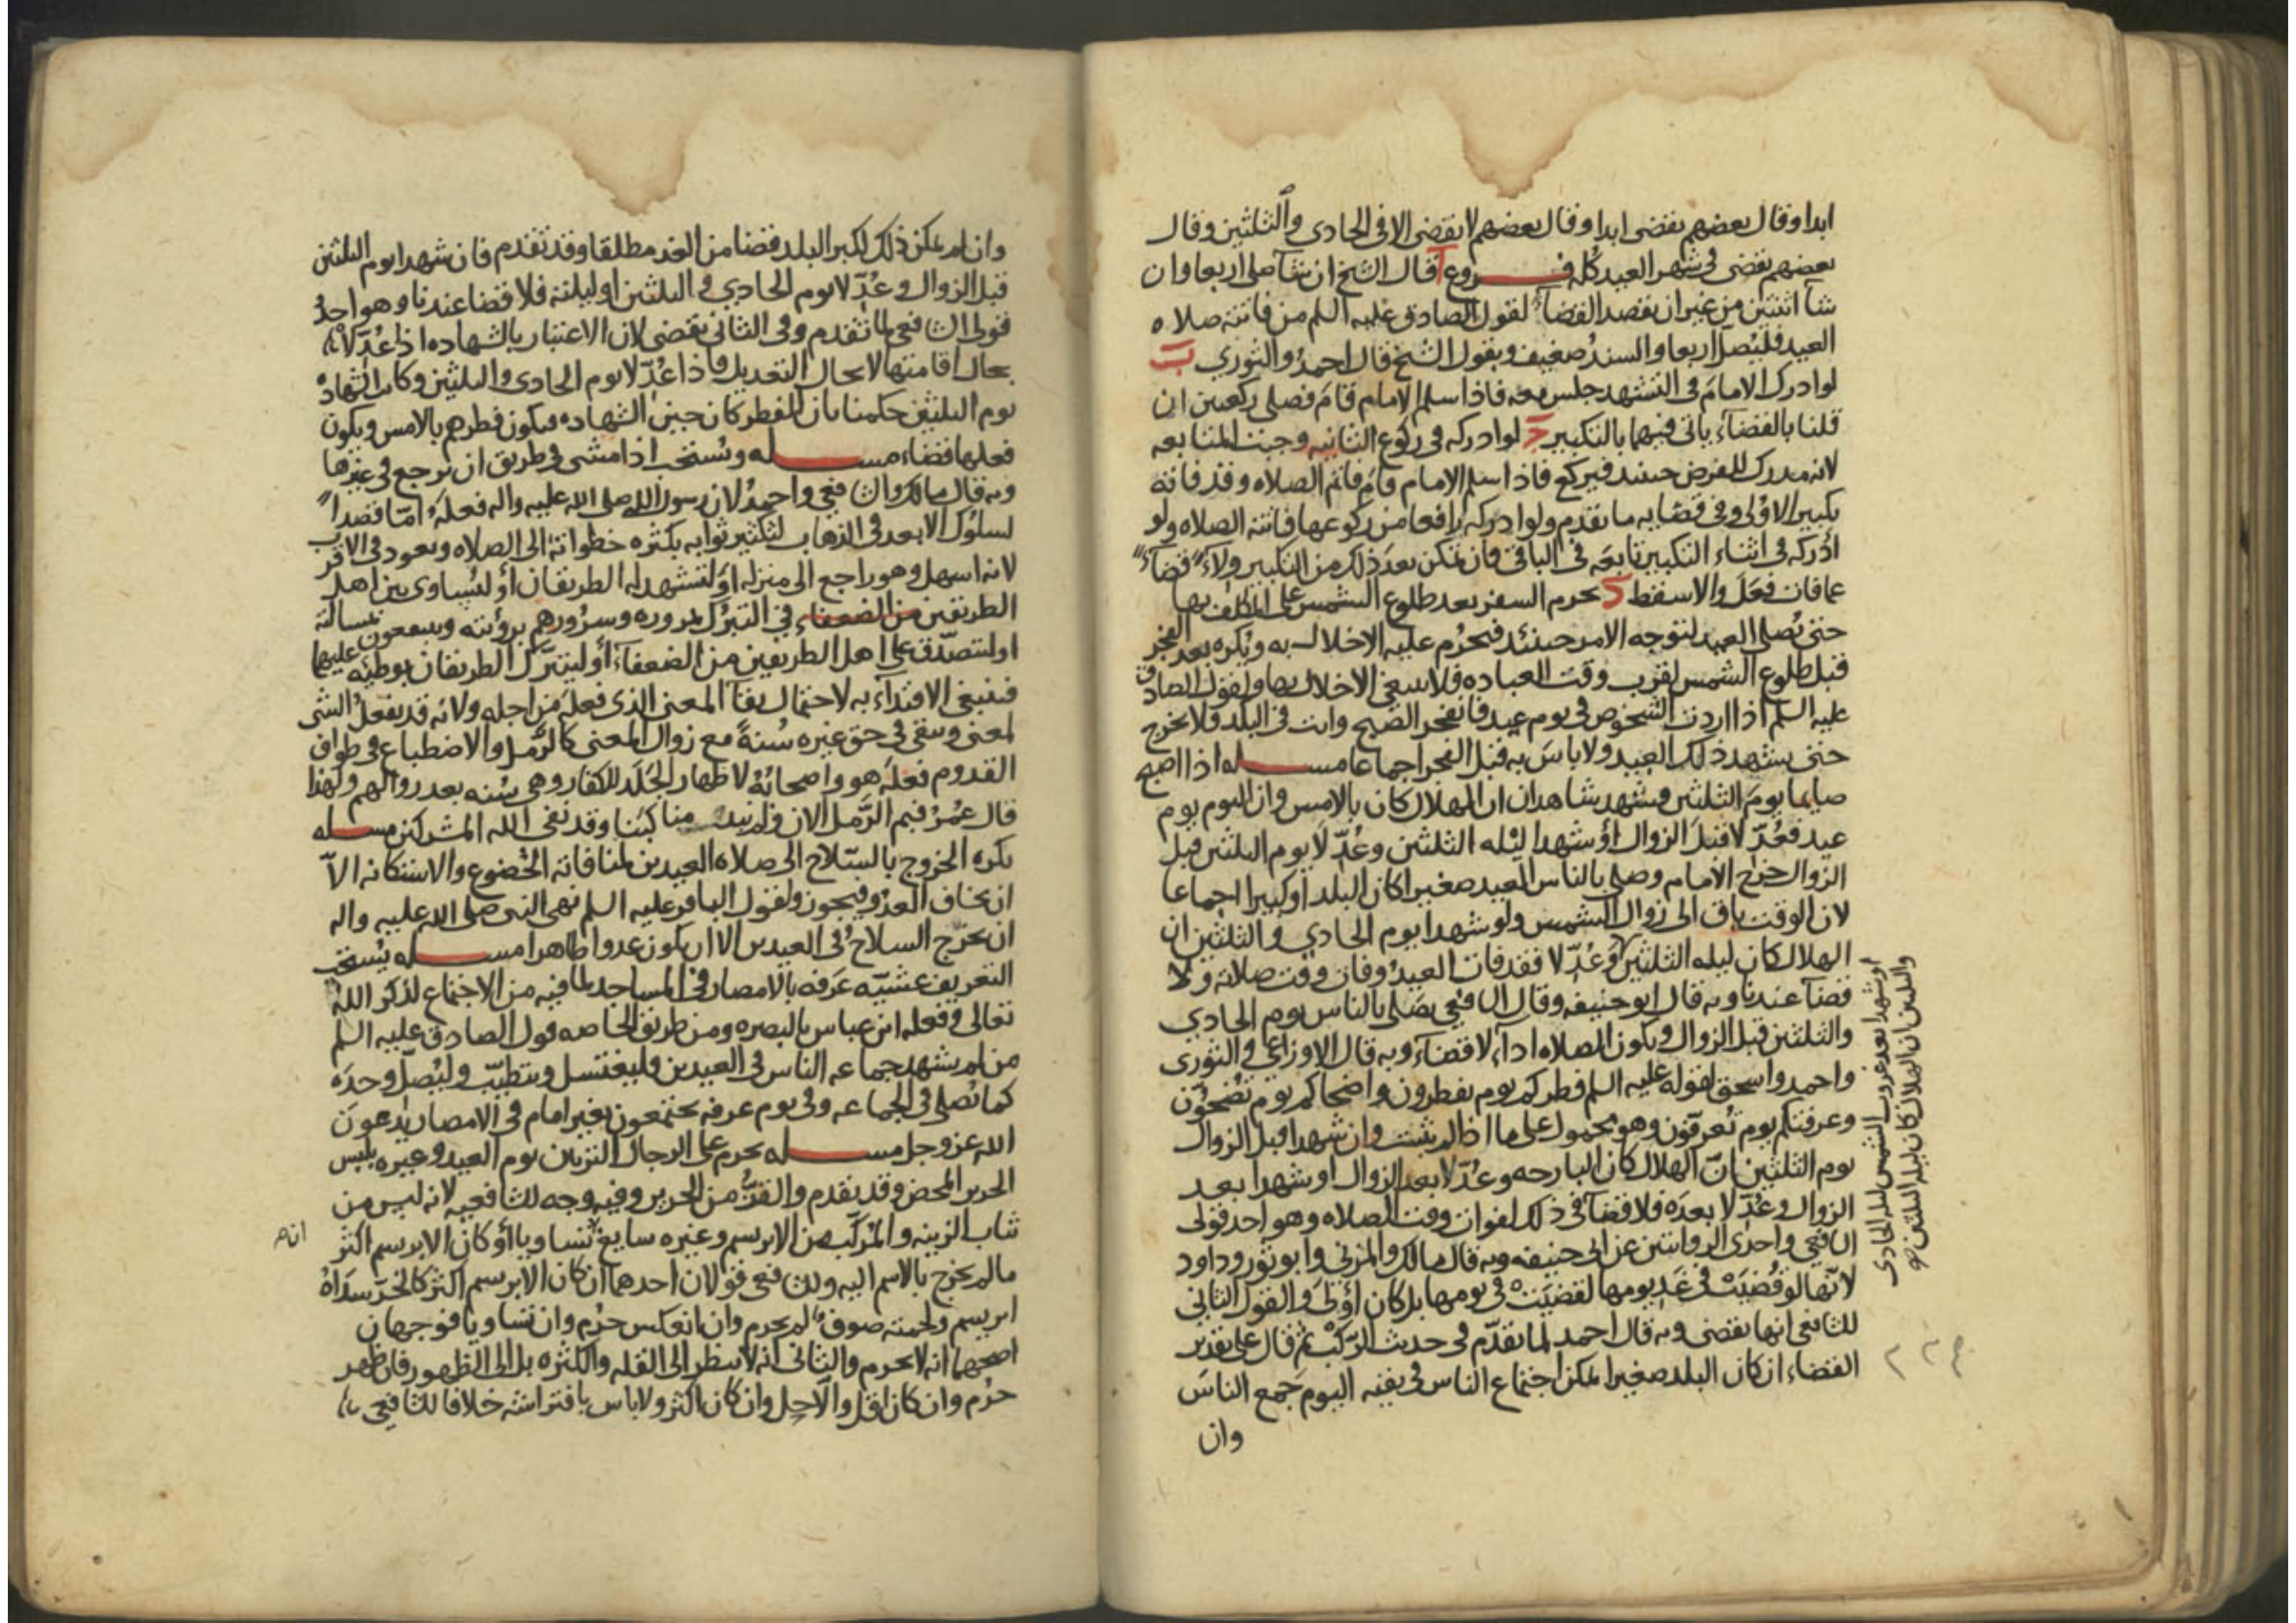 ابدا وقال بعضهم يقضى ابدا وقال بعضهم لا يقضى الا فى الحادي والثلثين وقال
بعضهم يقضى فى شهر العيد كله فروع آ قال الشيخ ان شآ صلى اربعا وان
شآ اثنتين من غير ان يقصد القضآء لقول الصادق عليه السلم من فاتته صلاه
العيد فليصل اربعا والسند ضعيف وبقول الشيخ قال احمد والثوري ب
لو ادرك الامام فى التشهد جلس معه فاذا سلم الامام قام فصلى ركعتين ان
قلنا بالقضآء ياتى فيهما بالتكبير ج لو ادركه فى ركوع الثانيه وجبت المتابعه
لانه مدرك للفرض حينئذ فيركع فاذا سلم الامام قام فاتم الصلاه وقد فاته
تكبير الاولى وفى قضايه ما تقدم ولو ادركه رافعا من ركوعها فاتته الصلاه ولو
ادركه فى اثناء التكبير تابعه فى الباقى فان تمكن بعد ذلك من التكبير ولآء قضآء
عما فات فعل والا سقط د يحرم السفر بعد طلوع الشمس على المكلف بها
حتى يصلى العيد لتوجه الامر حينئذ فيحرم عليه الاخلال به ويكره بعد الفجر
قبل طلوع الشمس لقرب وقت العباده فلا ينبغى الاخلال بها ولقول الصادق
عليه السلم اذا اردت الشخوص فى يوم عيد فانفجر الصبح وانت فى البلد فلا تخرج
حتى تشهد ذلك العيد ولا باس به قبل الفجر اجماعا مسله اذا اصبح
صايما يوم الثلثين وشهد شاهدان ان الهلال كان بالامس وان اليوم يوم
عيد فعدلا قبل الزوال او شهدا ليله الثلثين وعدلا يوم الثلثين قبل
الزوال خرج الامام وصلى بالناس العيد صغيرا كان البلد او كبيرا اجماعا
لان الوقت باق الى زوال الشمس ولو شهدا يوم الحادي والثلثين ان
الهلال كان ليله الثلثين وعدلا فقد فات العيد وفات وقت صلاته ولا
قضآ عندنا وبه قال ابو حنيفه وقال الشافعي يصلى بالناس يوم الحادي
والثلثين قبل الزوال ويكون الصلاه ادآء لا قضآء وبه قال الاوزاعي والثوري
واحمد واسحق لقوله عليه السلم فطركم يوم يفطرون واضحاكم يوم تضحون
وعرفتكم يوم تعرفون وهو محمول على ما اذا لم يثبت وان شهدا قبل الزوال
يوم الثلثين ان الهلال كان البارحه وعدلا بعد الزوال او شهدا بعد
الزوال وعدلا بعده فلا قضآء فى ذلك لفوات وقت الصلاه وهو احد قولى
الشافعي واحدى الروايتين عن ابى حنيفه وبه قال مالك والمزنى وابو ثور وداود
لانها لو قضيت فى غد يومها لقضيت فى يومها بل كان اولى والقول الثانى
للشافعى انها يقضى وبه قال احمد لما تقدم فى حديث الركب ثم قال على تقدير
القضاء ان كان البلد صغيرا يمكن اجتماع الناس فى بقيه اليوم جمع الناس
وان
او شهدا بعد غروب الشمس ليله الحادى
والثلثين ان الهلال كان ليله الثلثين صح
وان لم يمكن ذلك لكبر البلد قضا من الغد مطلقا وقد تقدم فان شهدا يوم الثلثين
قبل الزوال وعدلا يوم الحادي والثلثين او ليلته فلا قضا عندنا وهو احد
قولى الشافعى لما تقدم وفى الثانى يقضى لان الاعتبار بالشهاده اذا عدلا
بحال اقامتها لا بحال التعديل فاذا عدلا يوم الحادى والثلثين وكانت الشهاده
يوم الثلثين حكمنا بان الفطر كان حين الشهاده فيكون فطرهم بالامس ويكون
فعلها قضاء مسله ويستحب اذا مشى فى طريق ان يرجع فى غيرها
وبه قال مالك والشافعي واحمد لان رسول الله صلى الله عليه واله فعله اما قصدا
لسلوك الابعد فى الذهاب لتكثير ثوابه بكثره خطواته الى الصلاه ويعود فى الاقرب
لانه اسهل وهو راجع الى منزله او لتشهد له الطريقان او ليساوى بين اهل
الطريقين من الضعفاء في التبرك لمروره وسرورهم برؤيته وينتفعون بمسالته
او ليتصدق على اهل الطريقين من الضعفآء او ليتبرك الطريقان بوطئه عليها
فينبغى الاقتدآء به لاحتمال بقآ المعنى الذى فعله من اجله ولانه قد يفعل الشى
لمعنى ويبقى فى حق غيره سنة مع زوال المعنى كالرمل والاضطباع فى طواف
القدوم فعله هو واصحابه لاظهار الجلد للكفار وهى سنه بعد زوالهم ولهذا
قال عمر فيم الرمل الان ولم نبد مناكبنا وقد نفى الله المشركين مسله
يكره الخروج بالسلاح الى صلاه العيدين لمنافاته الخضوع والاستكانه الا
ان يخاف العدو فيجوز ولقول الباقر عليه السلم نهى النبى صلى الله عليه واله
ان يخرج السلاح فى العيدين الا ان يكون عدوا ظاهرا مسله يستحب
التعريف عشيه عرفه بالامصار فى المساجد لما فيه من الاجتماع لذكر الله
تعالى وفعله ابن عباس بالبصره ومن طريق الخاصه قول الصادق عليه السلم
من لم يشهد جماعه الناس فى العيدين فليغتسل ويتطيب وليصل وحده
كما يصلى فى الجماعه وفى يوم عرفه يجتمعون بغير امام فى الامصار يدعون
الله عز وجل مسله يحرم على الرجال التزين يوم العيد وغيره بلبس
الحرير المحض وقد تقدم والقز من الحرير وفيه وجه للشافعيه لانه ليس من
ثياب الزينه والمركب من الابريسم وغيره سايغ تساويا او كان الابريسم اكثر
ما لم يخرج بالاسم اليه وللشافعى قولان احدهما ان كان الابريسم اكثر كالخز سداه
ابريسم ولحمته صوف لم يحرم وان انعكس حرم وان تساويا فوجهان
اصحهما انه لا يحرم والثانى انه لا ينظر الى القله والكثره بل الى الظهور فان ظهر
حرم وان كان اقل والا حل وان كان اكثر ولا باس بافتراشه خلافا للشافعي